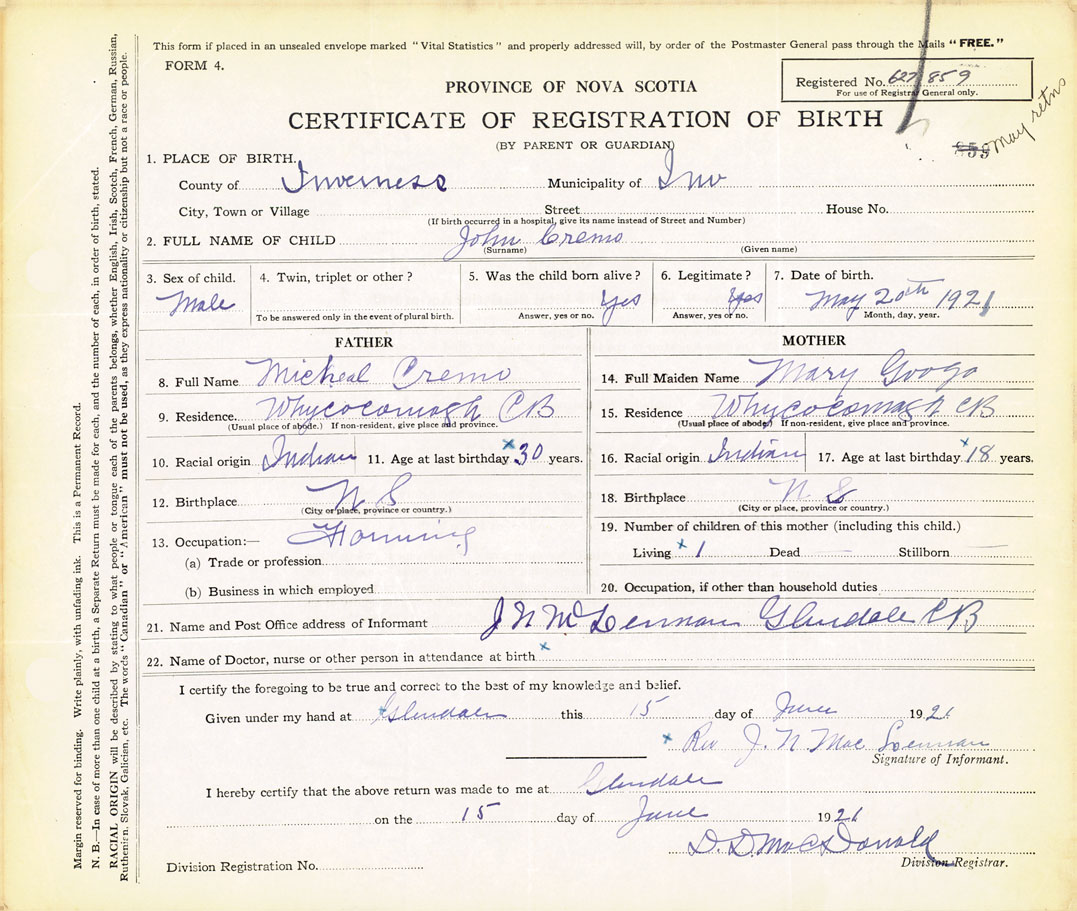 This form if placed in an unsealed envelope marked "Vital Statistics" and properly addressed will, by order of the Postmaster General pass through the Mails "FREE."
FORM 4.
Registered No. 627859
For use of Registrar General only.
PROVINCE OF NOVA SCOTIA
CERTIFICATE OF REGISTRATION OF BIRTH
(BY PARENT OR GUARDIAN)
859 May retns
1. PLACE OF BIRTH.
County of Inverness Municipality of Inv
City, Town or Village Street House No.
(If birth occurred in a hospital, give its name instead of Street and Number)
2. FULL NAME OF CHILD John Cremo
(Surname) (Given name)
3. Sex of child. Male
4. Twin, triplet or other?
To be answered only in the event of plural birth.
5. Was the child born alive? Yes
Answer, yes or no.
6. Legitimate? Yes
Answer, yes or no.
7. Date of birth.
May 20th 1921
Month, day, year.
FATHER
8. Full Name Micheal Cremo
9. Residence. Whycocomagh CB
(Usual place of abode.) If non-resident, give place and province.
10. Racial origin Indian 11. Age at last birthday x 30 years.
12. Birthplace N S
(City or place, province or country.)
13. Occupation:— Farming
(a) Trade or profession
(b) Business in which employed
MOTHER
14. Full Maiden Name Mary Googo
15. Residence Whycocomagh CB
(Usual place of abode.) If non-resident, give place and province.
16. Racial origin Indian 17. Age at last birthday x 18 years.
18. Birthplace N S
(City or place, province or country.)
19. Number of children of this mother (including this child.)
Living x 1 Dead — Stillborn —
20. Occupation, if other than household duties
21. Name and Post Office address of Informant J N McLennan Glendale CB
22. Name of Doctor, nurse or other person in attendance at birth x
I certify the foregoing to be true and correct to the best of my knowledge and belief.
Given under my hand at x Glendale this 15 day of June 1921
x Rev J. N. Mac Lennan
Signature of Informant.
I hereby certify that the above return was made to me at Glendale
on the 15 day of June 1921
D. D. MacDonald
Division Registrar.
Division Registration No.
Margin reserved for binding. Write plainly, with unfading ink. This is a Permanent Record.
N. B.—In case of more than one child at a birth, a Separate Return must be made for each, and the number of each, in order of birth, stated.
RACIAL ORIGIN will be described by stating to what people or tongue each of the parents belongs, whether English, Irish, Scotch, French, German, Russian,
Ruthenian, Slovak, Galician, etc. The words "Canadian" or "American" must not be used, as they express nationality or citizenship but not a race or people.